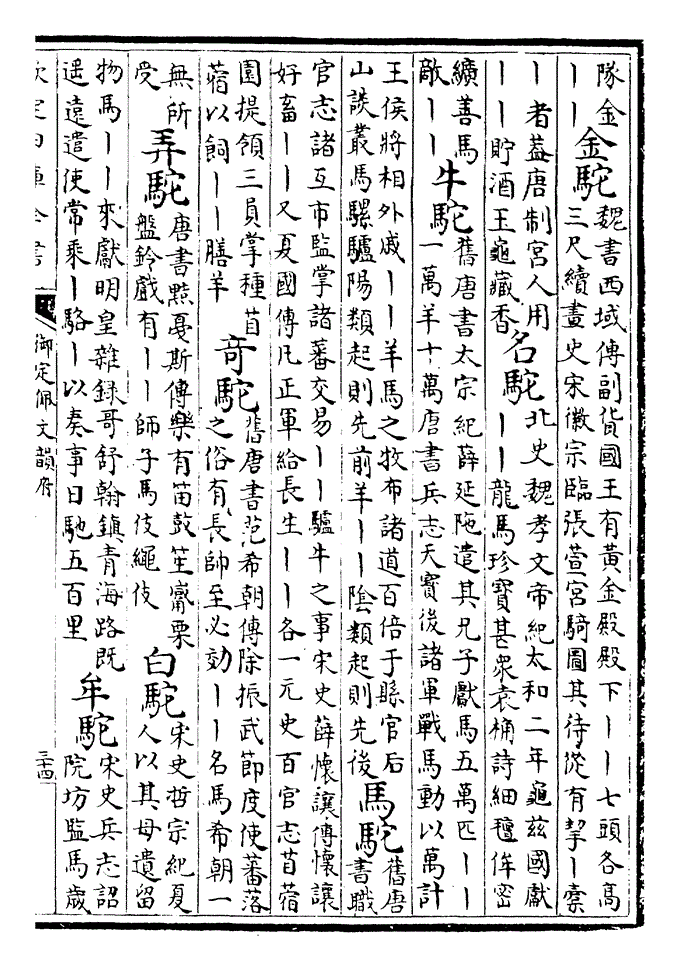 隊金
丨丨
金駝
魏書西域傳副貨國王有黃金殿殿下丨丨七頭各高
三尺續畫史宋徽宗臨張萱宮騎圖其待從有挈丨橐
丨者葢唐制宮人用
丨丨貯酒玉龜藏香
名駝
北史魏孝文帝紀太和二年龜茲國獻
丨丨龍馬珍寳甚衆袁桷詩細氊侔宻
纊善馬
敵丨丨
牛駝
舊唐書太宗紀薛延陁遣其兄子獻馬五萬匹丨丨
一萬羊十萬唐書兵志天寳後諸軍戰馬動以萬計
王侯將相外戚丨丨羊馬之牧布諸道百倍于縣官后
山談叢馬騾驢陽類起則先前羊丨丨隂類起則先後
馬駝
舊唐
書職
官志諸互市監掌諸蕃交易丨丨驢牛之事宋史薛懷讓傳懷讓
好畜丨丨又夏國傳凡正軍給長生丨丨各一元史百官志苜蓿
園提領三員掌種苜
蓿以飼丨丨膳羊
奇駝
舊唐書范希朝傳除振武節度使蕃落
之俗有長帥至必効丨丨名馬希朝一
無所
受
弄駝
唐書黠戛斯傳樂有笛鼓笙觱栗
盤鈴戲有丨丨師子馬伎繩伎
白駝
宋史哲宗紀夏
人以其母遺留
物馬丨丨來獻明皇雜録哥舒翰鎮青海路既
遥遠遣使常乘丨駱丨以奏事日馳五百里
牟駝
宋史兵志詔
院坊監馬歲
欽定四庫全書
御定佩文韻府
三十四